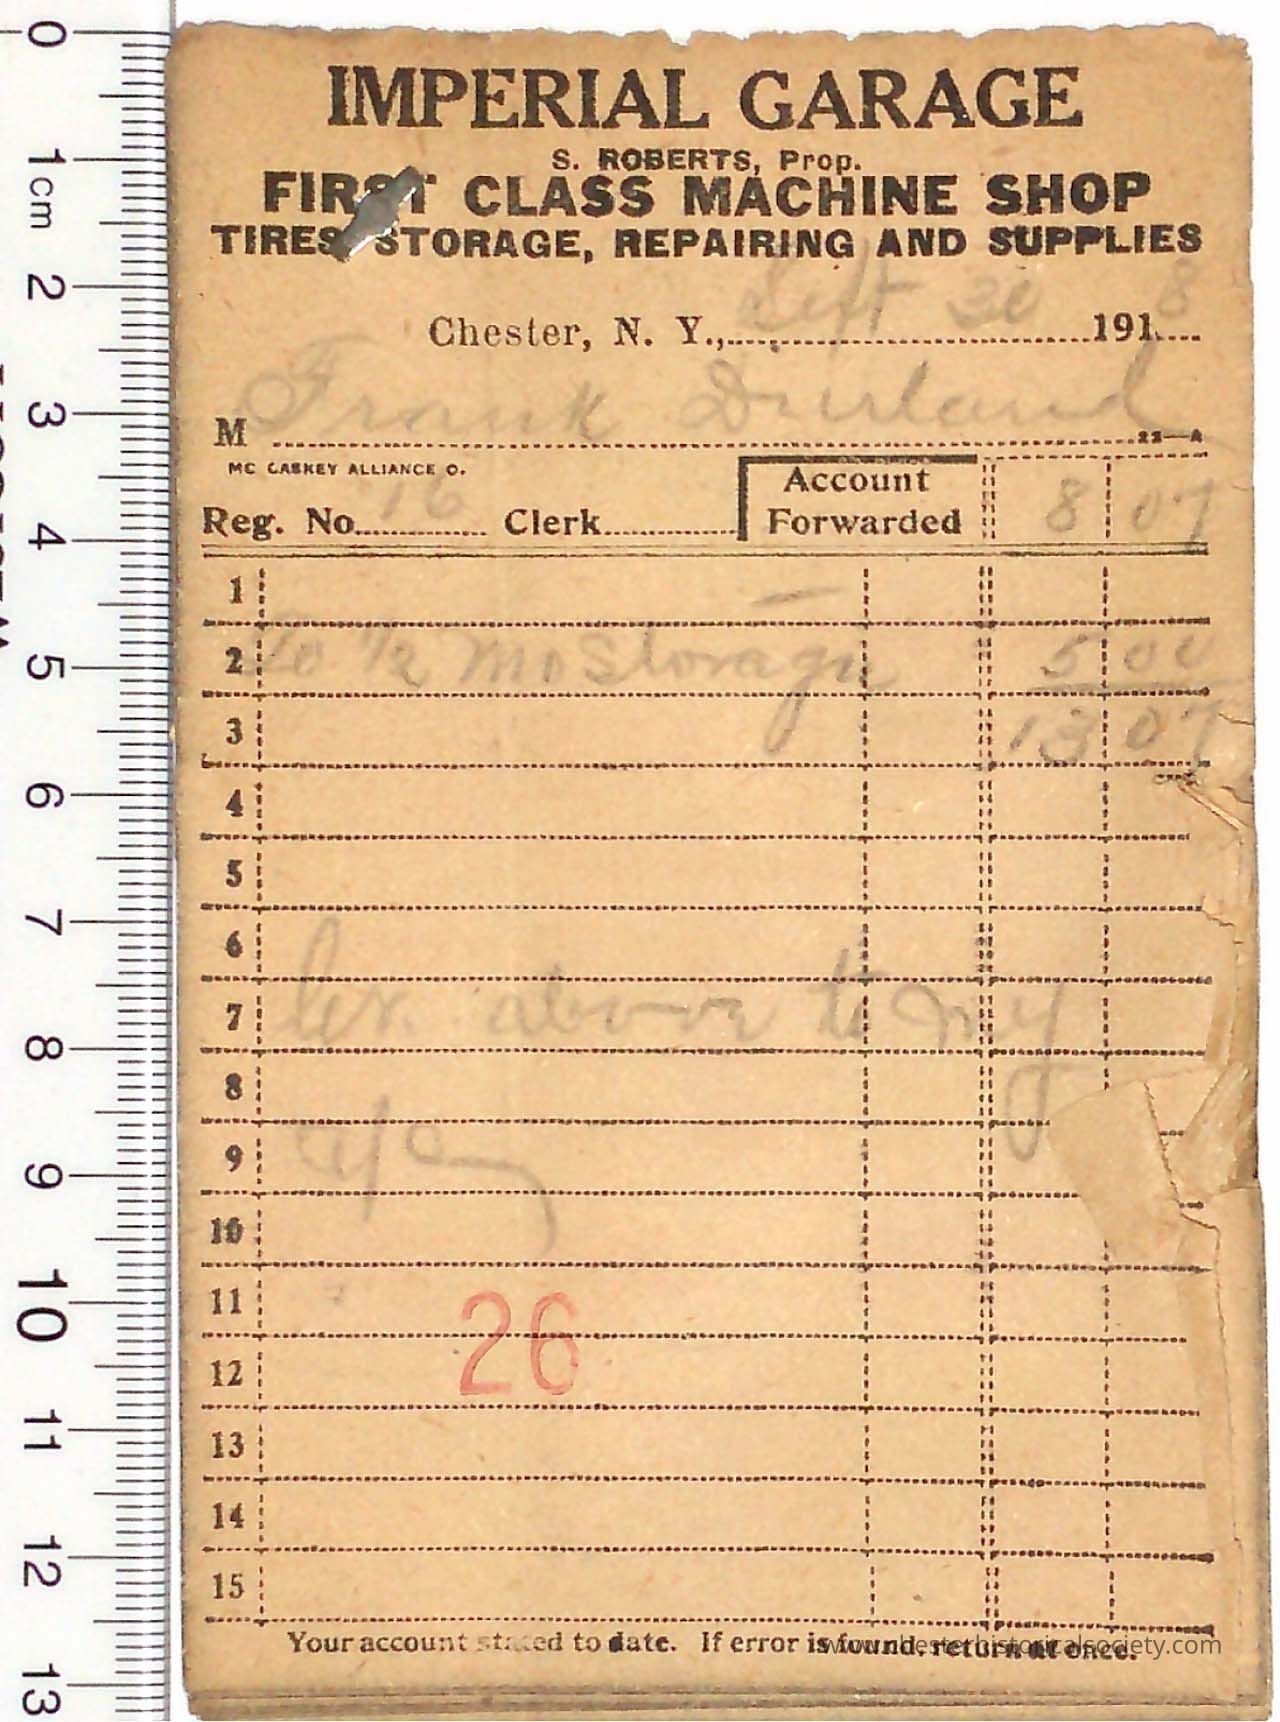 IMPERIAL GARAGE
S. ROBERTS, Prop.
FIRST CLASS MACHINE SHOP
TIRES STORAGE, REPAIRING AND SUPPLIES
Chester, N. Y., Sept 30 1918
M Frank Durland
22—A
MC CASKEY ALLIANCE O.
Reg. No. 16 Clerk
Account Forwarded 8 07
1
2 To 1/2 Mo Storage 5 00
3 13 07
4
5
6
7 Cr. above to my
8
9 a/c
10
11
26
12
13
14
15
Your account stated to date. If error is found, return at once.
www.chesterhistoricalsociety.com
0
1
cm
2
3
4
5
6
7
8
9
10
11
12
13